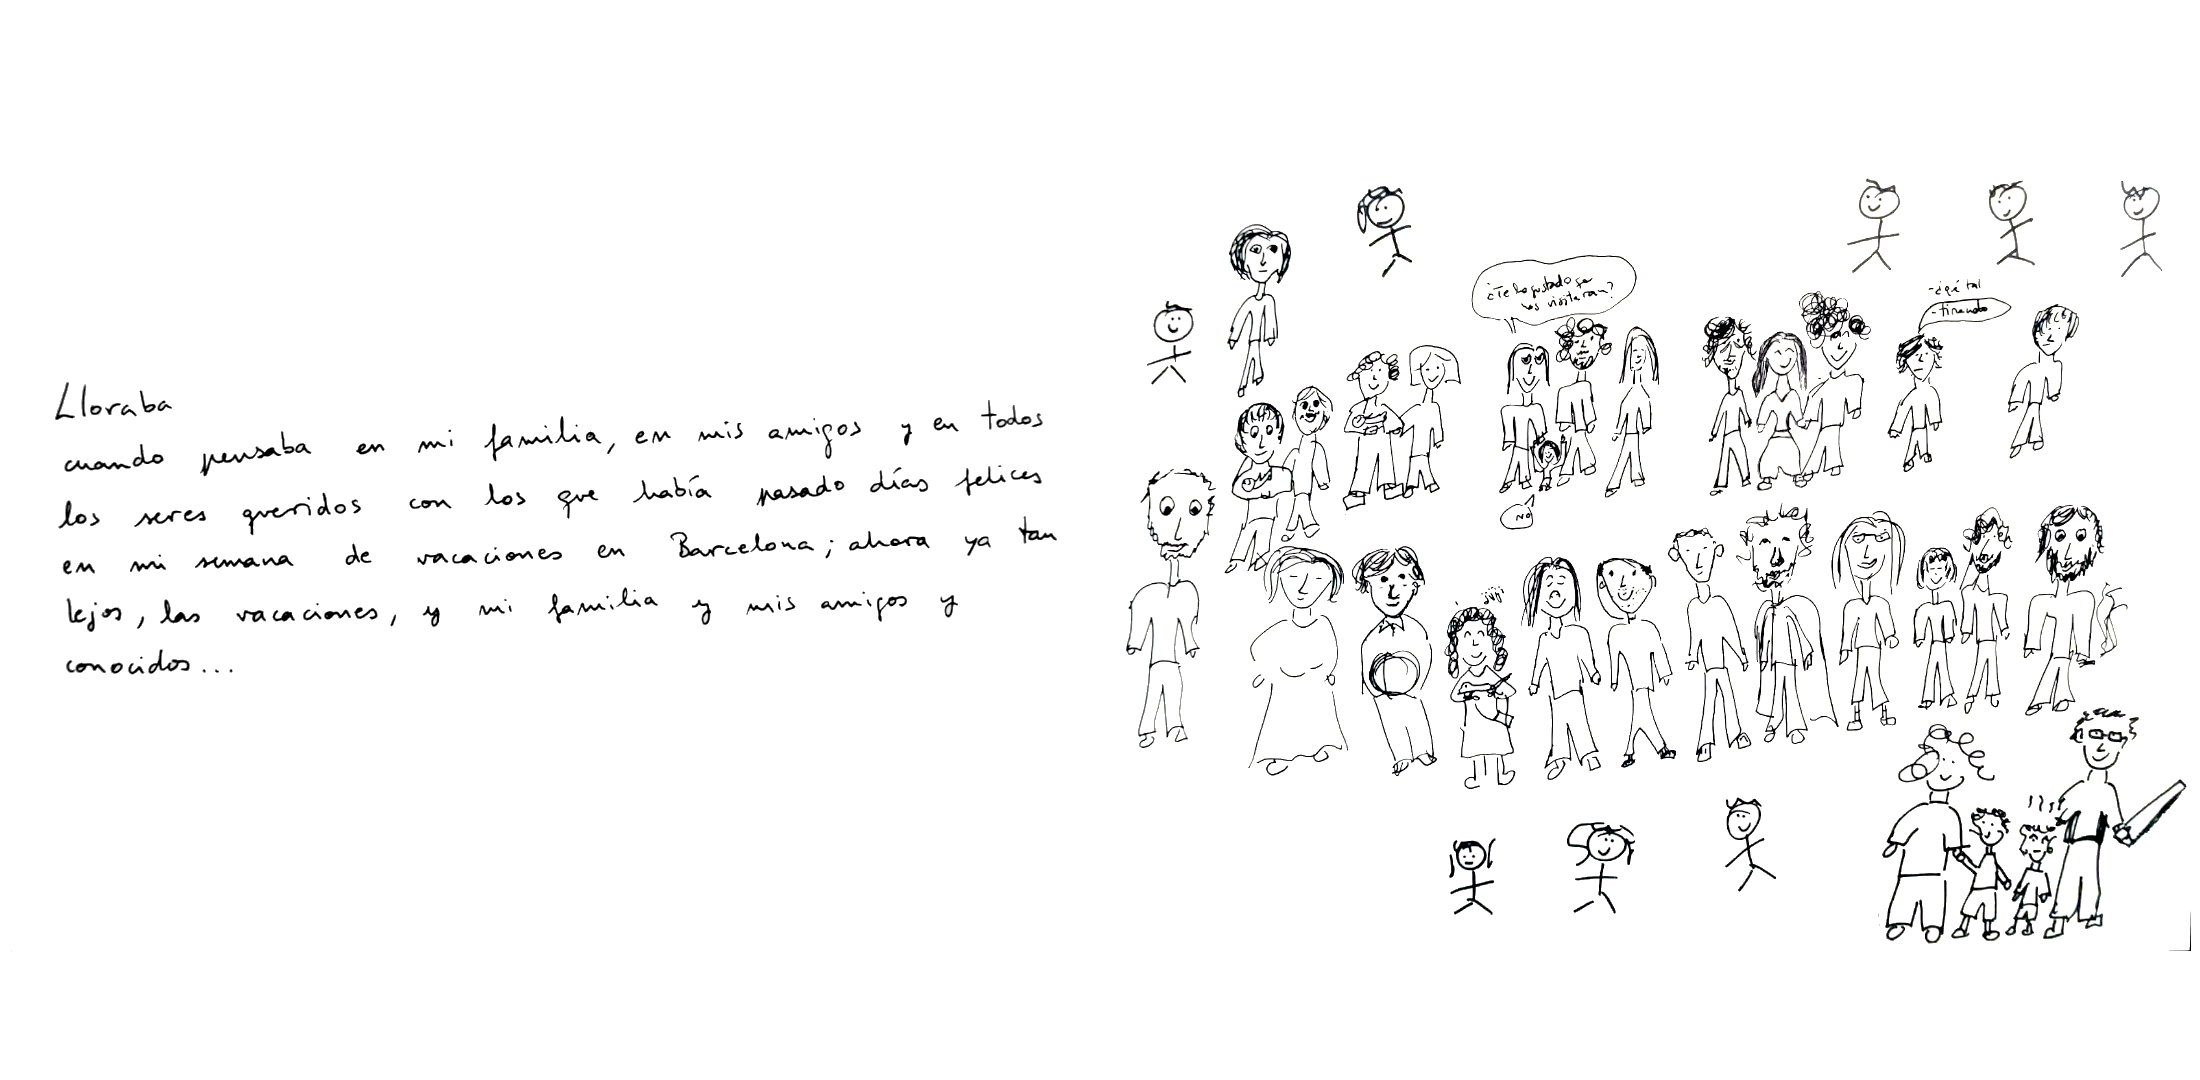 Lloraba
cuando pensaba en mi familia, en mis amigos y en todos
los seres queridos con los que había pasado días felices
en mi semana de vacaciones en Barcelona; ahora ya tan
lejos, las vacaciones, y mi familia y mis amigos y
conocidos...
¿Te ha gustado que
nos visitaran?
NO
-¿qué tal
-tirando